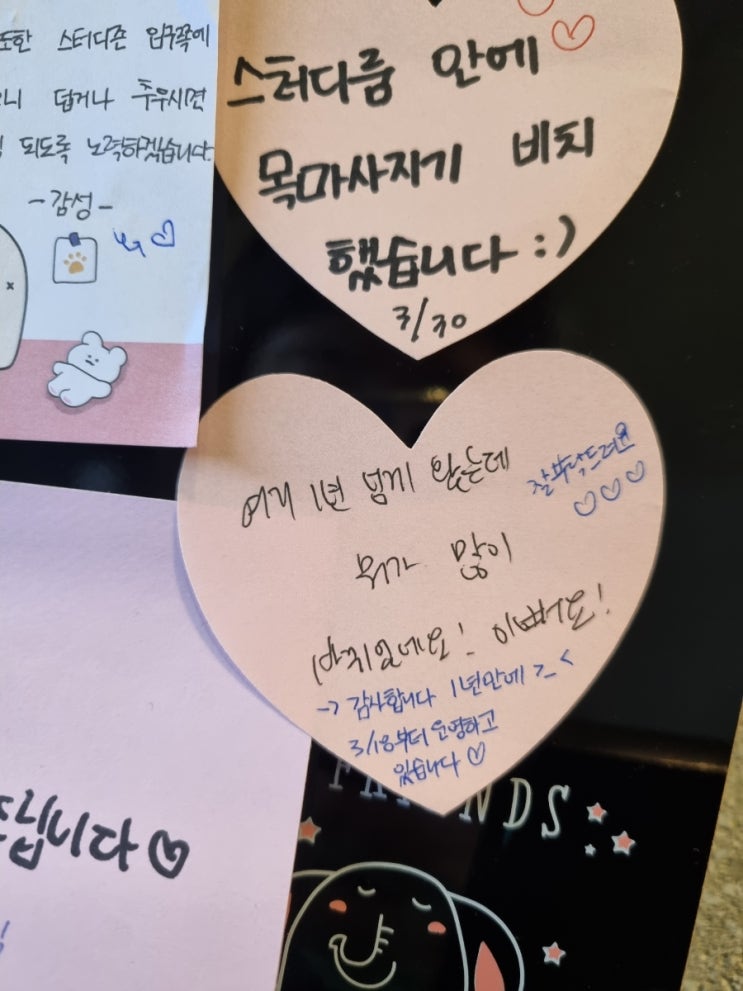 또한 스터디존 입구쪽에
니 덥거나 추우시면
되도록 노력하겠습니다.
-감성-
스터디룸 안에
목마사지기 비치
했습니다 :)
3/30
여기 1년 넘게 왔는데
뭐가 많이
바뀌었네요! 이뻐요!
잘부탁드려요
-> 감사합니다 1년만에 >_<
3/18부터 운영하고
있습니다
드립니다
FRIENDS